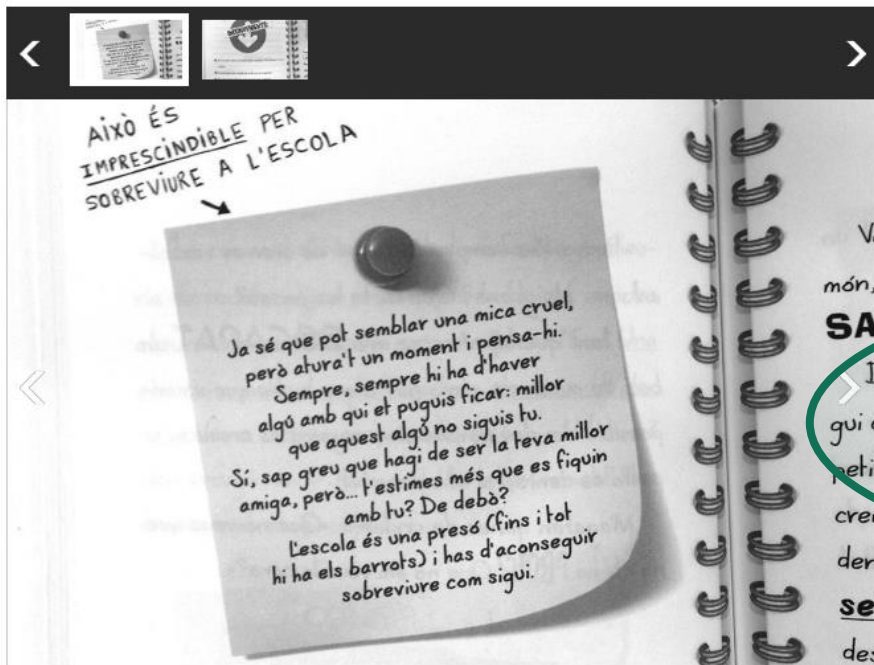 AIXÒ ÉS
IMPRESCINDIBLE PER
SOBREVIURE A L'ESCOLA
Ja sé que pot semblar una mica cruel,
però atura't un moment i pensa-hi.
Sempre, sempre hi ha d'haver
algú amb qui et puguis ficar: millor
que aquest algú no siguis tu.
Sí, sap greu que hagi de ser la teva millor
amiga, però... t'estimes més que es fiquin
amb tu? De debò?
L'escola és una presó (fins i tot
hi ha els barrots) i has d'aconseguir
sobreviure com sigui.
món,
SA
gui
peti